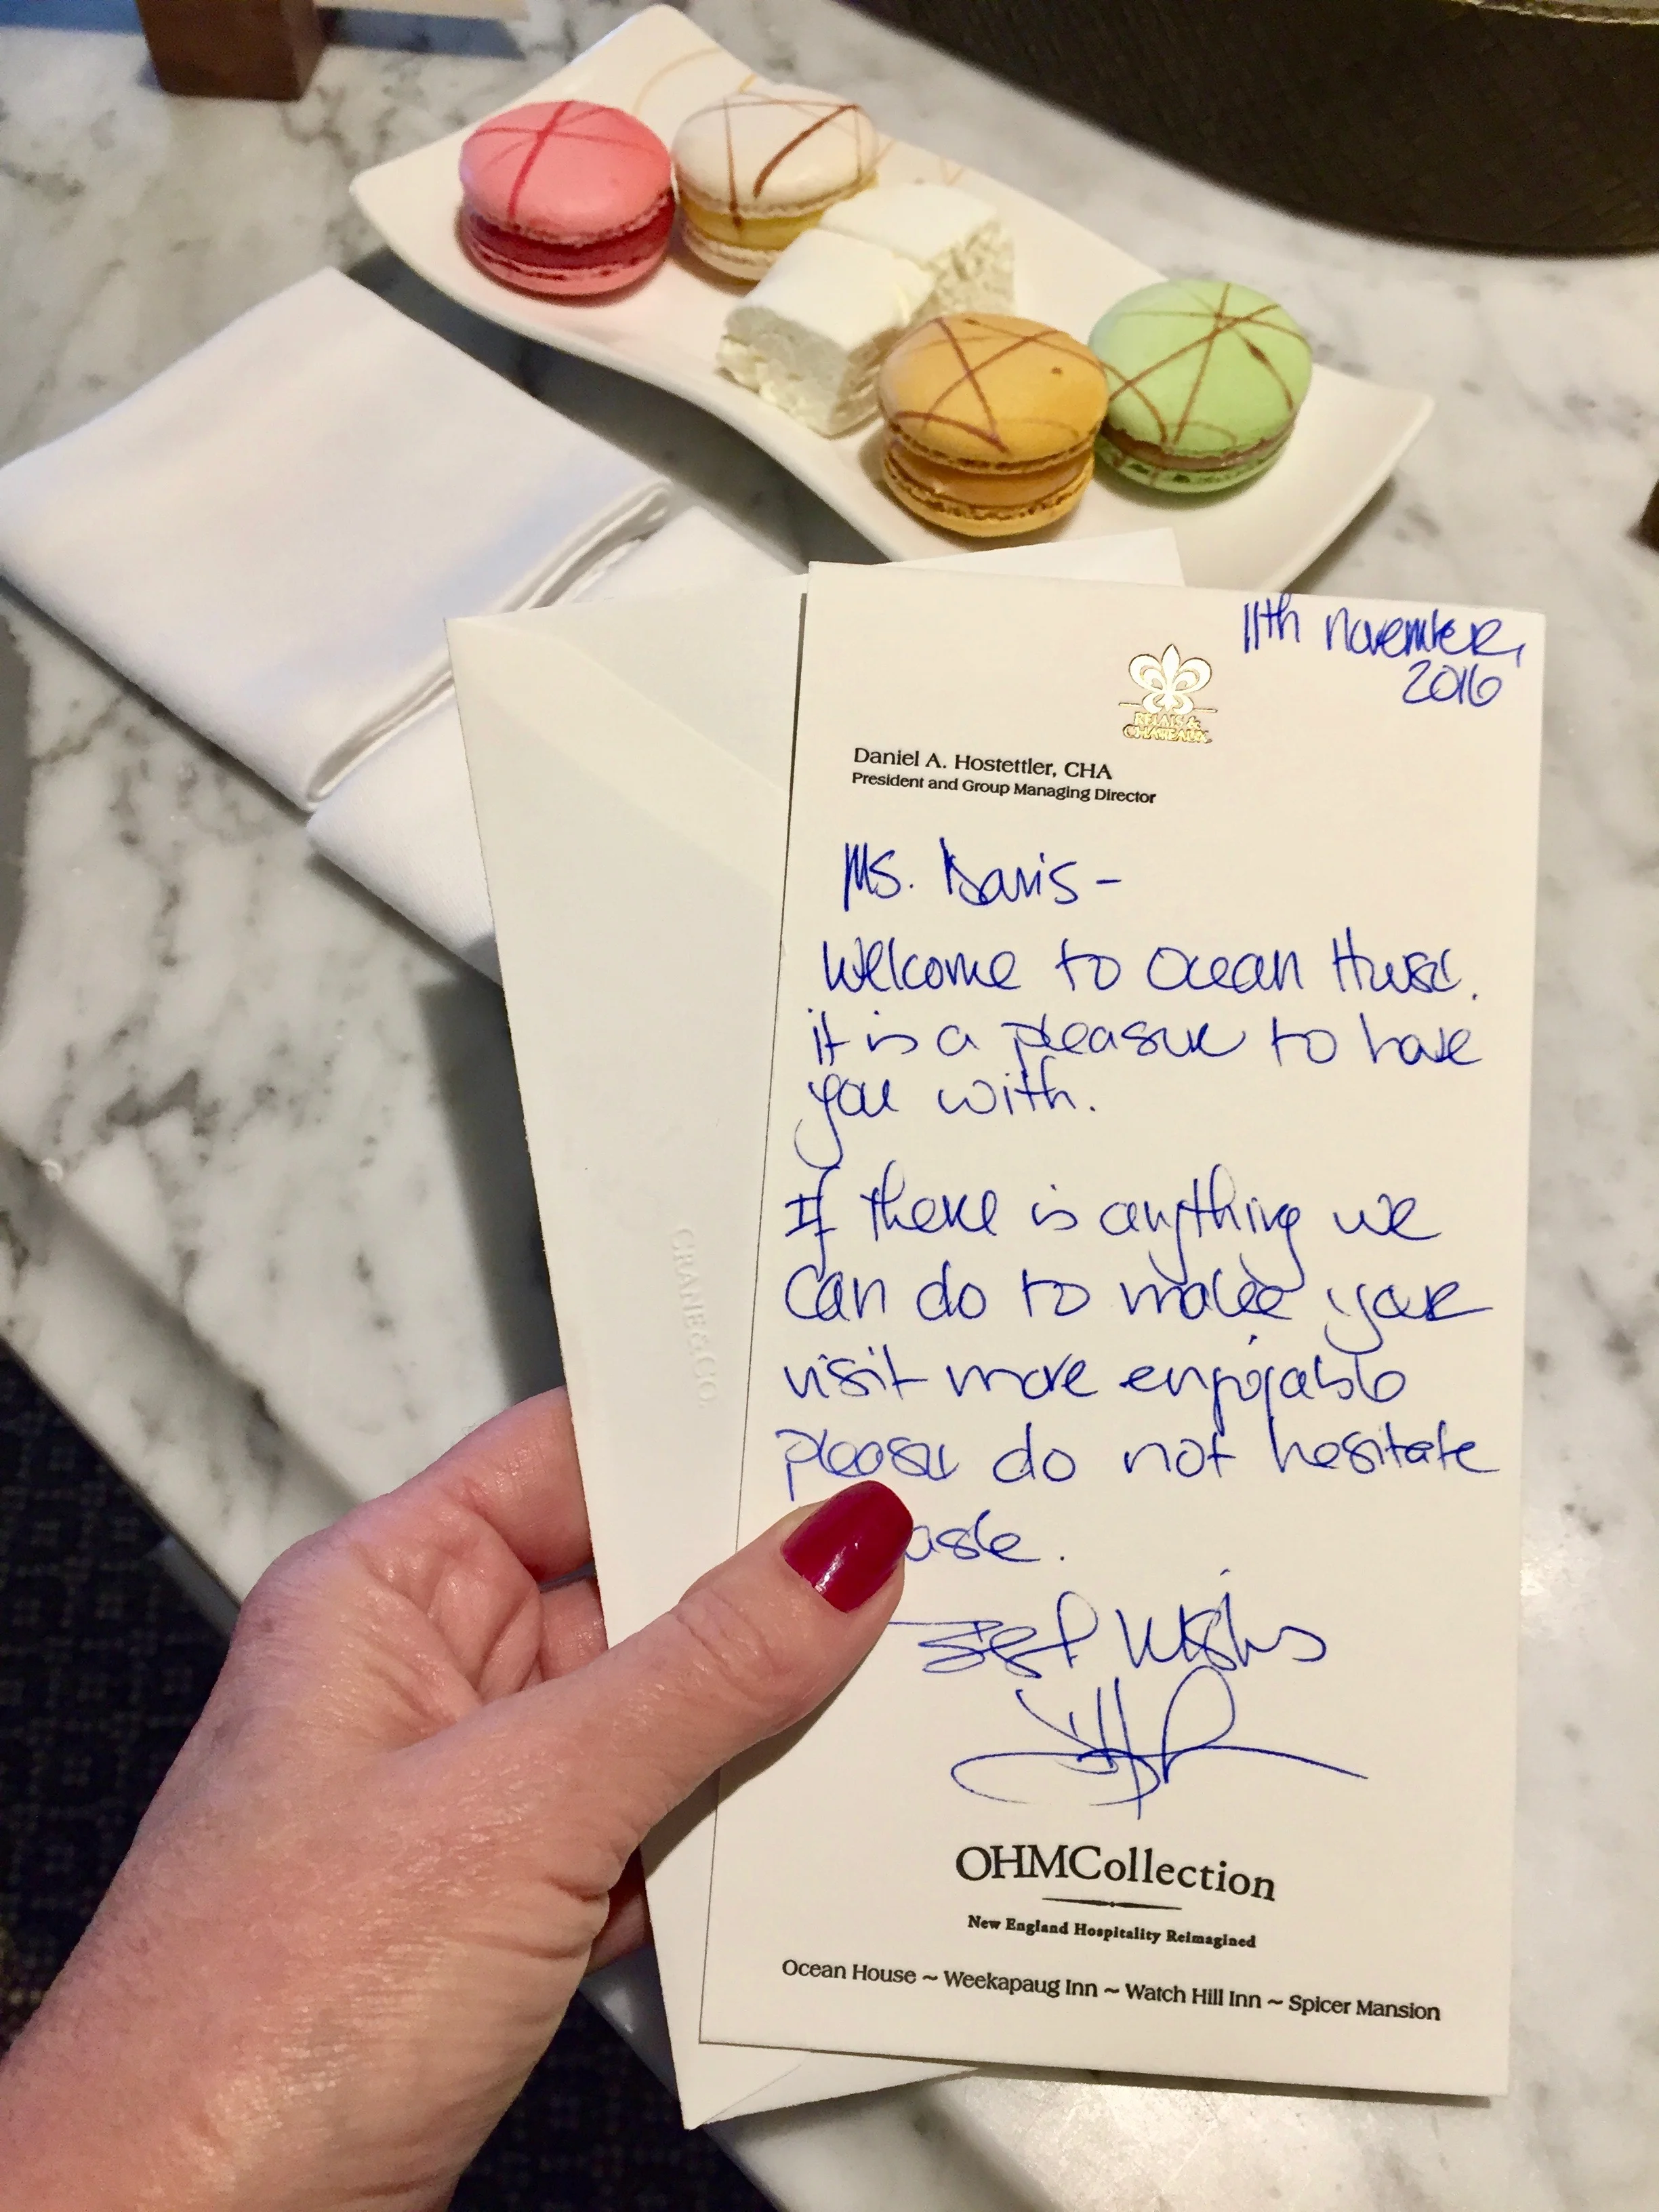 11th November,
2016
RELAIS &
CHATEAUX
Daniel A. Hostettler, CHA
President and Group Managing Director
Ms. Davis -
Welcome to Ocean House.
it is a pleasure to have
you with.
If there is anything we
can do to make your
visit more enjoyable
please do not hesitate
ask.
Best Wishes
OHMCollection
New England Hospitality Reimagined
Ocean House ~ Weekapaug Inn ~ Watch Hill Inn ~ Spicer Mansion
CRANE & CO.